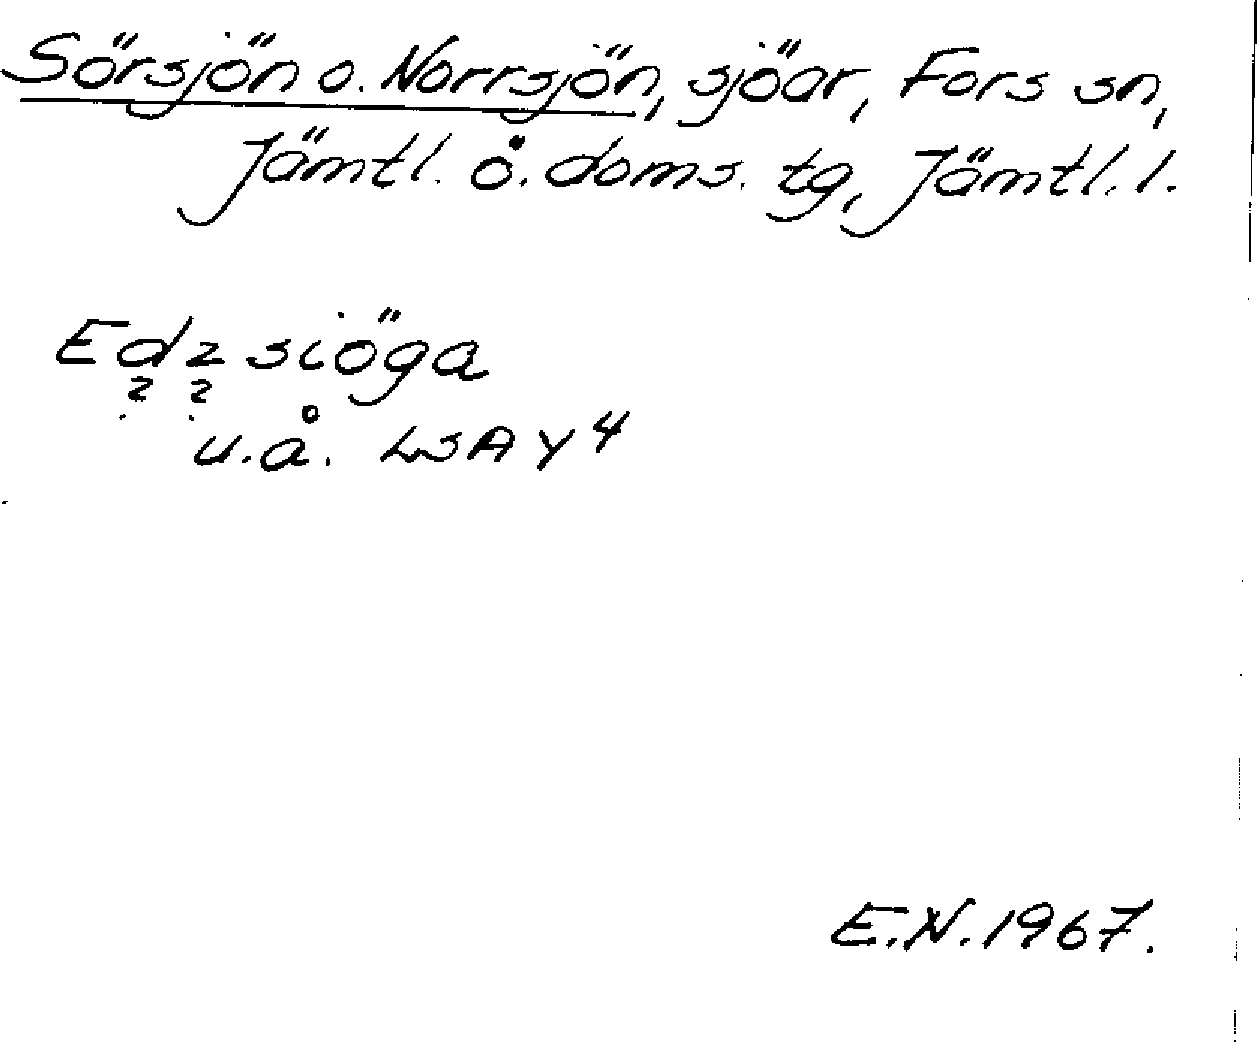 Sörsjön o. Norrsjön, sjöar, Fors sn,
Jämtl. ö. doms. tg, Jämtl. l.
Edzsiöga
? ?
u.å. LSA Y4
E.N. 1967.